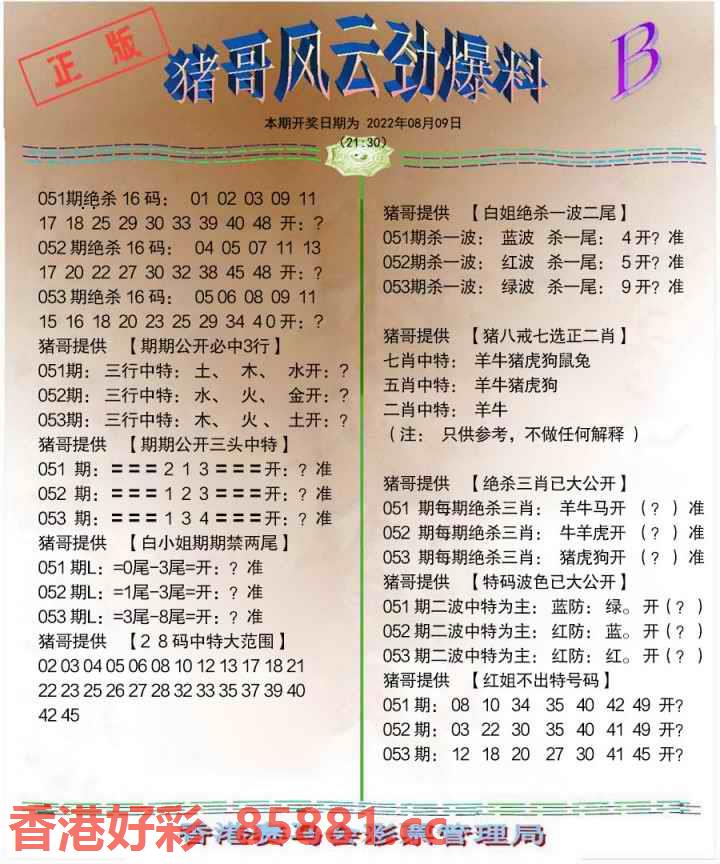 正版
猪哥风云劲爆料
B
本期开奖日期为 2022年08月09日
(21:30)
051期绝杀16码： 01 02 03 09 11
17 18 25 29 30 33 39 40 48 开：?
052期绝杀16码： 04 05 07 11 13
17 20 22 27 30 32 38 45 48 开：?
053期绝杀16码： 05 06 08 09 11
15 16 18 20 23 25 29 34 40开：?
猪哥提供 【期期公开必中3行】
051期：三行中特：土、 木、 水开：?
052期：三行中特：水、 火、 金开：?
053期：三行中特：木、 火、 土开：?
猪哥提供 【期期公开三头中特】
051 期：〓〓〓213〓〓〓开：? 准
052 期：〓〓〓123〓〓〓开：? 准
053 期：〓〓〓134〓〓〓开：? 准
猪哥提供 【白小姐期期禁两尾】
051期L：=0尾-3尾=开：? 准
052期L：=1尾-3尾=开：? 准
053期L：=3尾-8尾=开：? 准
猪哥提供 【28码中特大范围】
02 03 04 05 06 08 10 12 13 17 18 21
22 23 25 26 27 28 32 33 35 37 39 40
42 45
猪哥提供 【白姐绝杀一波二尾】
051期杀一波： 蓝波 杀一尾： 4开? 准
052期杀一波： 红波 杀一尾： 5开? 准
053期杀一波： 绿波 杀一尾： 9开? 准
猪哥提供 【猪八戒七选正二肖】
七肖中特： 羊牛猪虎狗鼠兔
五肖中特： 羊牛猪虎狗
二肖中特： 羊牛
(注： 只供参考，不做任何解释)
猪哥提供 【绝杀三肖已大公开】
051 期每期绝杀三肖： 羊牛马开 (?)准
052 期每期绝杀三肖： 牛羊虎开 (?)准
053 期每期绝杀三肖： 猪虎狗开 (?)准
猪哥提供 【特码波色已大公开】
051期二波中特为主： 蓝防： 绿。 开(?)
052期二波中特为主： 红防： 蓝。 开(?)
053期二波中特为主： 红防： 红。 开(?)
猪哥提供 【红姐不出特号码】
051期： 08 10 34 35 40 42 49 开?
052期： 03 22 30 35 40 41 49 开?
053期： 12 18 20 27 30 41 45 开?
香港好彩 85881.cc
香港赛马会彩票管理局